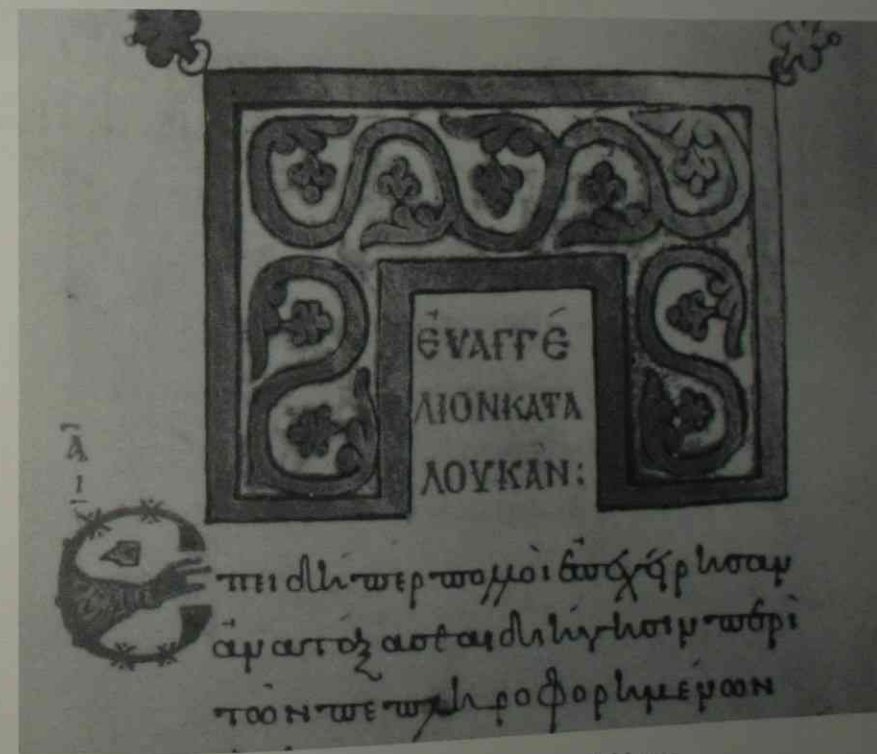 ἐυαγγέ
λιονκατα
λουκὰν:
Α
Ι
Ἐπειδήπερ πολλοὶ ἐπεχείρησαν
ἀνατάξασθαι διήγησιν περὶ
τῶν πεπληροφορημένων